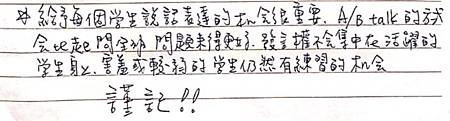 * 給予每個學生說話表達的机会很重要. A/B talk 的方式
会比起問全部問題來得較好. 發言權不会集中在活躍的
學生身上. 害羞或較弱的學生仍然有練習的机会
謹記!!